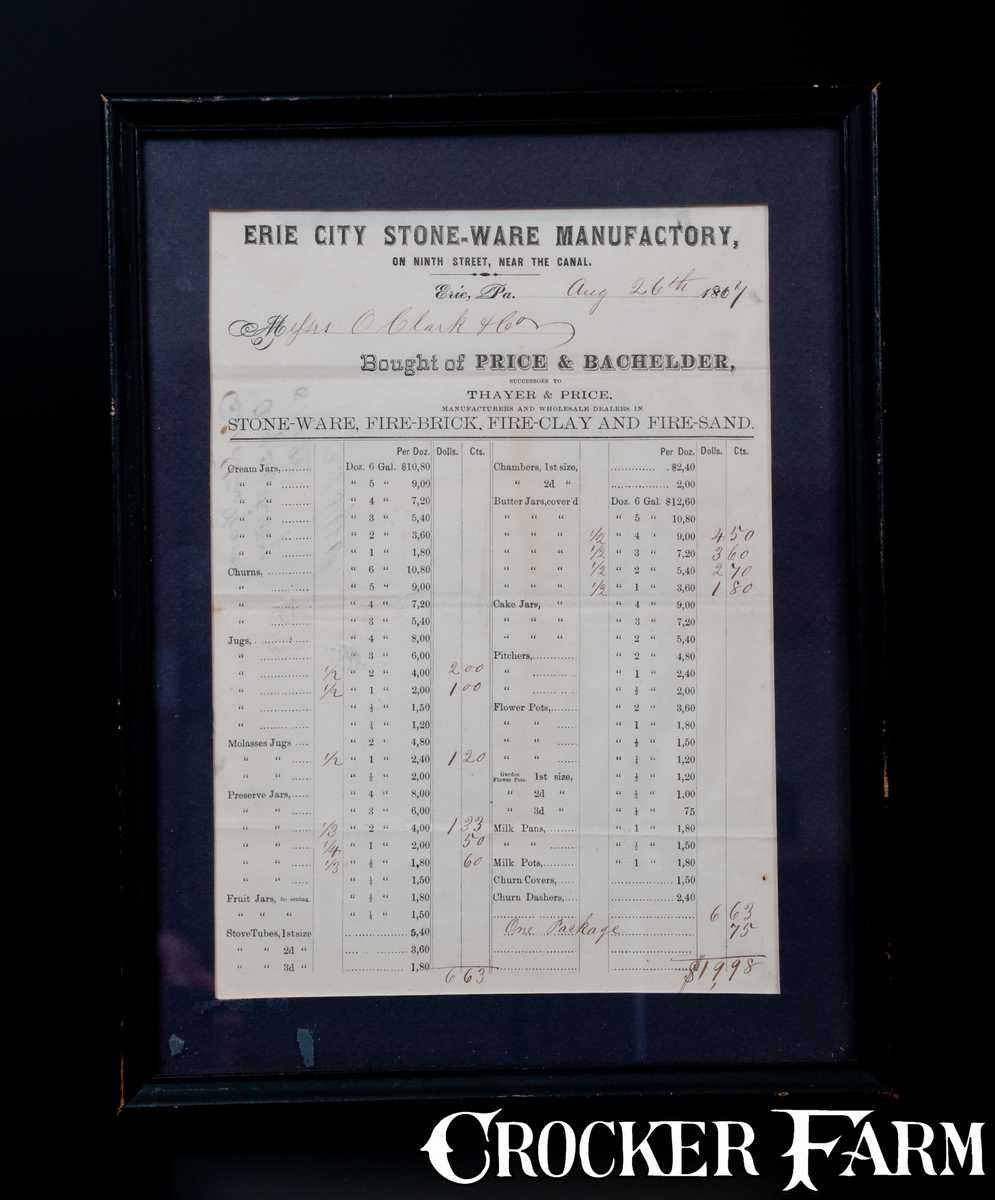 ERIE CITY STONE-WARE MANUFACTORY,
ON NINTH STREET, NEAR THE CANAL.
Erie, Pa. Aug 26th 1867
Messrs O Clark & Co
Bought of PRICE & BACHELDER,
SUCCESSORS TO
THAYER & PRICE,
MANUFACTURERS AND WHOLESALE DEALERS IN
STONE-WARE, FIRE-BRICK, FIRE-CLAY AND FIRE-SAND.
Per Doz. Dolls. Cts.
Cream Jars,......... Doz. 6 Gal. $10,80
“ “ ........ “ 5 “ 9,00
“ “ ........ “ 4 “ 7,20
“ “ ........ “ 3 “ 5,40
“ “ ........ “ 2 “ 3,60
“ “ ........ “ 1 “ 1,80
Churns, ............ “ 6 “ 10,80
“ ............ “ 5 “ 9,00
“ ............ “ 4 “ 7,20
“ ............ “ 3 “ 5,40
Jugs,............. “ 4 “ 8,00
“ ............ “ 3 “ 6,00
“ ............ 1/2 “ 2 “ 4,00 2 00
“ ............ 1/2 “ 1 “ 2,00 1 00
“ ............ “ ½ “ 1,50
“ ............ “ ¼ “ 1,20
Molasses Jugs .... “ 2 “ 4,80
“ “ ...... 1/2 “ 1 “ 2,40 1 20
“ “ ...... “ ½ “ 2,00
Preserve Jars,..... “ 4 “ 8,00
“ “ ...... “ 3 “ 6,00
“ “ ...... 1/3 “ 2 “ 4,00 1 33
“ “ ...... 1/4 “ 1 “ 2,00 50
“ “ ...... 1/3 “ ½ “ 1,80 60
“ “ ...... “ ¼ “ 1,50
Fruit Jars, for sealing. “ ½ “ 1,80
“ “ “ “ ¼ “ 1,50
Stove Tubes, 1st size ............ 5,40
“ “ 2d “ ............ 3,60
“ “ 3d “ ............ 1,80
6 63
Per Doz. Dolls. Cts.
Chambers, 1st size, ............. $2,40
“ 2d “ ............. 2,00
Butter Jars, cover'd Doz. 6 Gal. $12,60
“ “ “ “ 5 “ 10,80
“ “ “ 1/2 “ 4 “ 9,00 4 50
“ “ “ 1/2 “ 3 “ 7,20 3 60
“ “ “ 1/2 “ 2 “ 5,40 2 70
“ “ “ 1/2 “ 1 “ 3,60 1 80
Cake Jars, “ “ 4 “ 9,00
“ “ “ “ 3 “ 7,20
“ “ “ “ 2 “ 5,40
Pitchers,............ “ 2 “ 4,80
“ ............ “ 1 “ 2,40
“ ............ “ ½ “ 2,00
Flower Pots,....... “ 2 “ 3,60
“ “ ...... “ 1 “ 1,80
“ “ ...... “ ½ “ 1,50
“ “ ...... “ ¼ “ 1,20
Garden Flower Pots. 1st size, “ ½ “ 1,20
“ 2d “ “ ½ “ 1,00
“ 3d “ “ ¼ “ 75
Milk Pans,......... “ 1 “ 1,80
“ “ ........ “ ½ “ 1,50
Milk Pots,.......... “ 1 “ 1,80
Churn Covers, .... ................ 1,50
Churn Dashers,.... ................ 2,40
6 63
One Package 75
$19,98
CROCKER FARM